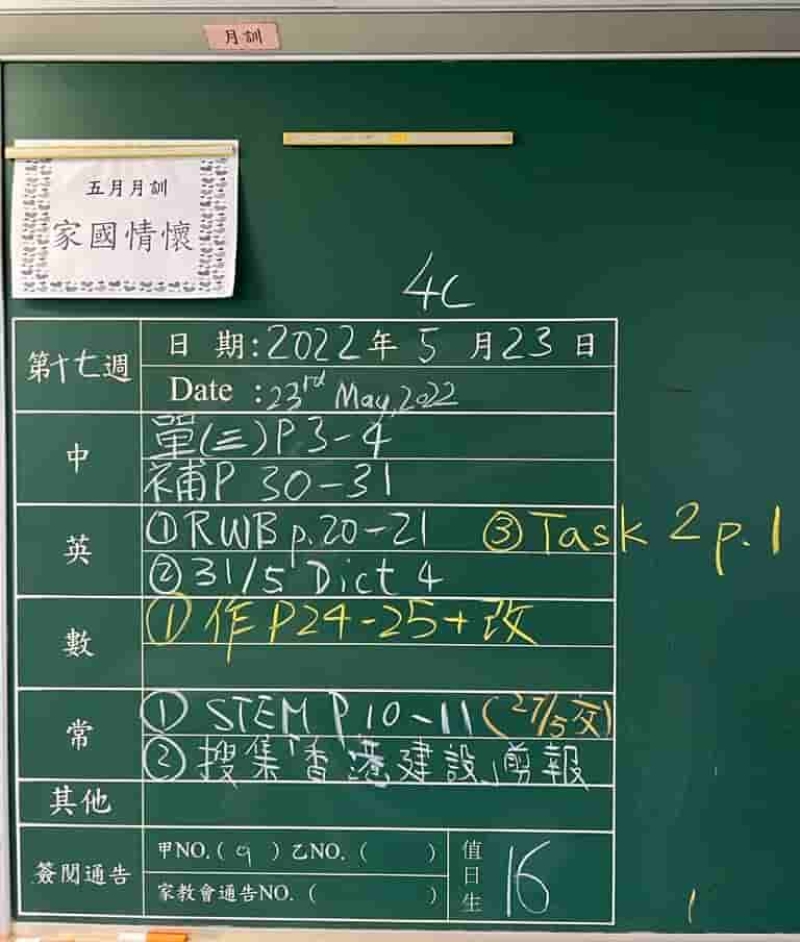 月訓
五月月訓
家國情懷
4C
第十七週
日 期:2022年 5 月23日
Date :23rd May,2022
中
單(三)P3-4
補P 30-31
英
①RWB p.20-21 ③Task 2 p.1
②31/5 Dict 4
數
①作P24-25+改
常
① STEM P10~11(27/5交)
②搜集「香港建設」剪報
其他
簽閱通告
甲NO.( 9 )乙NO.( )
家教會通告NO.( )
值日生
16